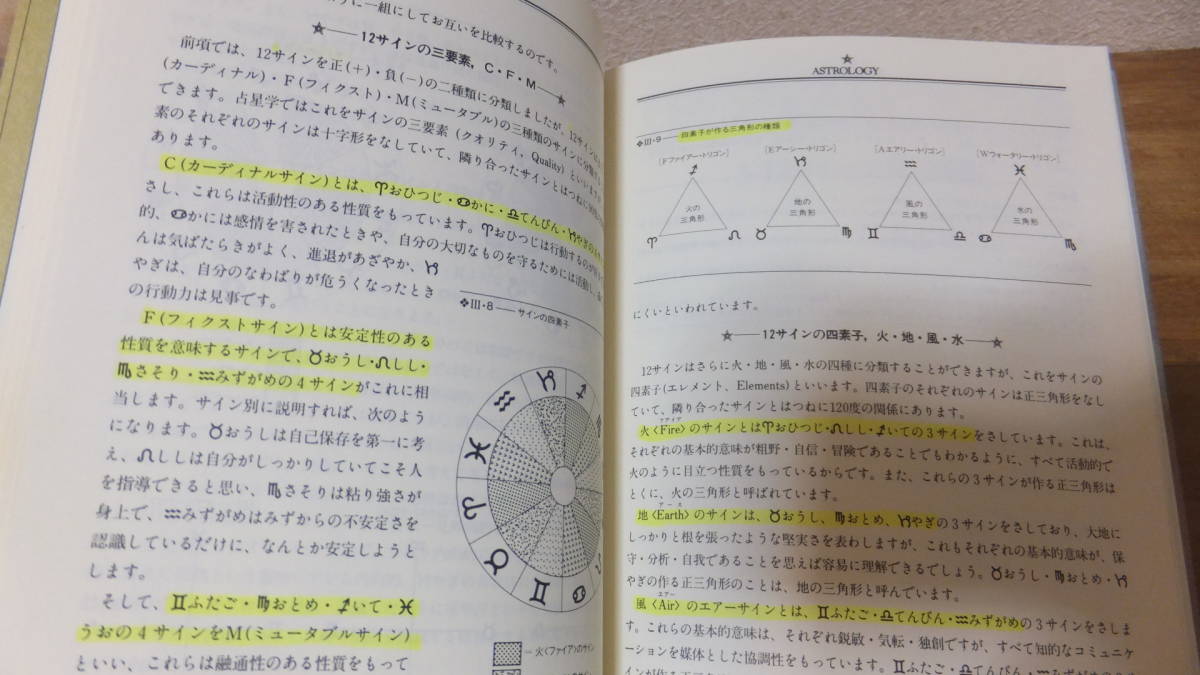 に一組にしてお互いを比較するのです。
12サインの三要素，C・F・M
前項では、12サインを正(＋)・負(－)の二種類に分類しましたが、12サインは
(カーディナル)・F(フィクスト)・M(ミュータブル)の三種類のサインに分
できます。占星学ではこれをサインの三要素(クオリティ，Quality)といいます
素のそれぞれのサインは十字形をなしていて、隣り合ったサインとはつねに
あります。
C(カーディナルサイン)とは、♈おひつじ・♋かに・♎てんびん・♑やぎの
さし、これらは活動性のある性質をもっています。♈おひつじは行動するのが
的、♋かには感情を害されたときや、自分の大切なものを守るためには活動し、
んは気ばたらきがよく、進退があざやか、♑
やぎは、自分のなわばりが危うくなったとき
の行動力は見事です。
F(フィクストサイン)とは安定性のある
性質を意味するサインで、♉おうし・♌しし・
♏さそり・♒みずがめの4サインがこれに相
当します。サイン別に説明すれば、次のよう
になります。♉おうしは自己保存を第一に考
え、♌ししは自分がしっかりしていてこそ人
を指導できると思い、♏さそりは粘り強さが
身上で、♒みずがめはみずからの不安定さを
認識しているだけに、なんとか安定しようと
します。
そして、♊ふたご・♍おとめ・♐いて・♓
うおの4サインをM(ミュータブルサイン)
といい、これらは融通性のある性質をもって
❖III・8――サインの四素子
♑ ♐
♒
♓
♈
♉
♊
♋
―火〈ファイア〉のサイン
ASTROLOGY
❖III・9――四素子が作る三角形の種類
［Fファイアー・トリゴン］ ［Eアーシー・トリゴン］ ［Aエアリー・トリゴン］ ［Wウォータリー・トリゴン］
♐ ♑ ♒ ♓
火の 地の 風の 水の
三角形 三角形 三角形 三角形
♈ ♌ ♉ ♍ ♊ ♎ ♋ ♏
にくいといわれています。
12サインの四素子，火・地・風・水
12サインはさらに火・地・風・水の四種に分類することができますが、これをサインの
四素子(エレメント、Elements)といいます。四素子のそれぞれのサインは正三角形をなし
ていて、隣り合ったサインとはつねに120度の関係にあります。
ファイア
火〈Fire〉のサインとは♈おひつじ・♌しし・♐いての3サインをさしています。これは、
それぞれの基本的意味が粗野・自信・冒険であることでもわかるように、すべて活動的で
火のように目立つ性質をもっているからです。また、これらの3サインが作る正三角形は
とくに、火の三角形と呼ばれています。
アース
地〈Earth〉のサインは、♉おうし、♍おとめ、♑やぎの3サインをさしており、大地に
しっかりと根を張ったような堅実さを表わしますが、これもそれぞれの基本的意味が、保
守・分析・自我であることを思えば容易に理解できるでしょう。♉おうし・♍おとめ・♑
やぎの作る正三角形のことは、地の三角形と呼んでいます。
エアー
風〈Air〉のエアーサインとは、♊ふたご・♎てんびん・♒みずがめの3サインをさしま
す。これらの基本的意味は、それぞれ鋭敏・気転・独創ですが、すべて知的なコミュニケ
ーションを媒体とした協調性をもっています。♊ふたご・♎てんびん・♒みずがめのサ